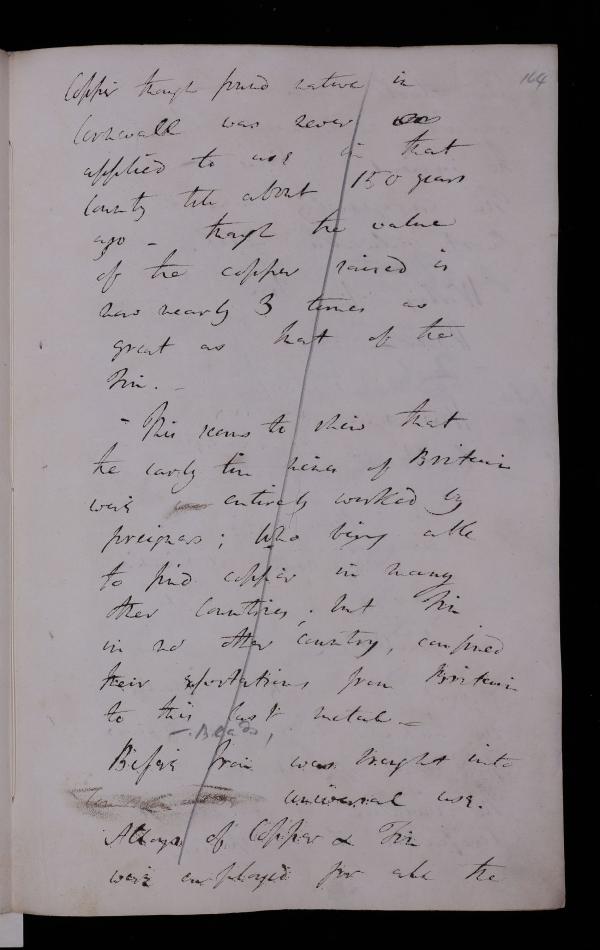 164
Copper though found native in
Cornwall was never
applied to use in that
County till about 150 years
ago - though the value
of the copper raised is
now nearly 3 times as
great as that of the
Tin. -
- This seems to shew that
the early tin mines of Britain
were entirely worked by
foreigners; who being able
to find copper in many
other Countries, but Tin
in no other Country, confined
their exportations from Britain
to this last metal -
- Beads,
Before Iron was brought into
universal use.
Alloys of Copper & Tin
were employed for all the